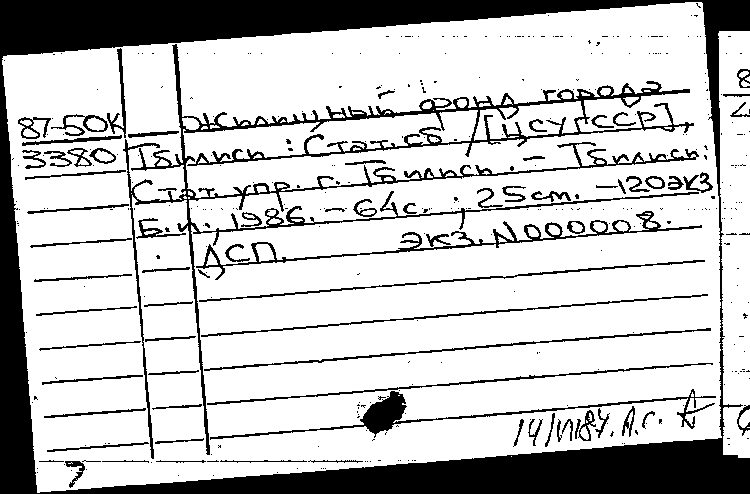 87-50К Жилищный фонд города
3380 Тбилиси : Стат. сб. / [ЦСУГССР],
Стат. упр. г. Тбилиси. – Тбилиси:
Б.и., 1986. – 64с. ; 25см. – 120экз.
ДСП. Экз. N000008.
А.С.
7